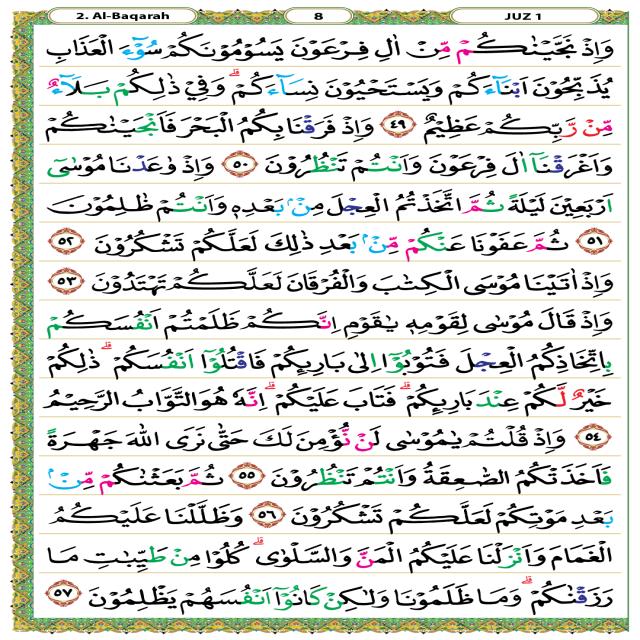 2. Al-Baqarah 8 JUZ 1
وَاِذْ نَجَّيْنٰكُمْ مِّنْ اٰلِ فِرْعَوْنَ يَسُوْمُوْنَكُمْ سُوْٓءَ الْعَذَابِ
يُذَبِّحُوْنَ اَبْنَآءَكُمْ وَيَسْتَحْيُوْنَ نِسَآءَكُمْ ۗ وَفِيْ ذٰلِكُمْ بَلَآءٌ
مِّنْ رَّبِّكُمْ عَظِيْمٌ ٤٩ وَاِذْ فَرَقْنَا بِكُمُ الْبَحْرَ فَاَنْجَيْنٰكُمْ
وَاَغْرَقْنَآ اٰلَ فِرْعَوْنَ وَاَنْتُمْ تَنْظُرُوْنَ ٥٠ وَاِذْ وٰعَدْنَا مُوْسٰىٓ
اَرْبَعِيْنَ لَيْلَةً ثُمَّ اتَّخَذْتُمُ الْعِجْلَ مِنْۢ بَعْدِهٖ وَاَنْتُمْ ظٰلِمُوْنَ
٥١ ثُمَّ عَفَوْنَا عَنْكُمْ مِّنْۢ بَعْدِ ذٰلِكَ لَعَلَّكُمْ تَشْكُرُوْنَ ٥٢
وَاِذْ اٰتَيْنَا مُوْسَى الْكِتٰبَ وَالْفُرْقَانَ لَعَلَّكُمْ تَهْتَدُوْنَ ٥٣
وَاِذْ قَالَ مُوْسٰى لِقَوْمِهٖ يٰقَوْمِ اِنَّكُمْ ظَلَمْتُمْ اَنْفُسَكُمْ
بِاتِّخَاذِكُمُ الْعِجْلَ فَتُوْبُوْٓا اِلٰى بَارِىِٕكُمْ فَاقْتُلُوْٓا اَنْفُسَكُمْ ۗ ذٰلِكُمْ
خَيْرٌ لَّكُمْ عِنْدَ بَارِىِٕكُمْ ۗ فَتَابَ عَلَيْكُمْ ۗ اِنَّهٗ هُوَ التَّوَّابُ الرَّحِيْمُ
٥٤ وَاِذْ قُلْتُمْ يٰمُوْسٰى لَنْ نُّؤْمِنَ لَكَ حَتّٰى نَرَى اللّٰهَ جَهْرَةً
فَاَخَذَتْكُمُ الصّٰعِقَةُ وَاَنْتُمْ تَنْظُرُوْنَ ٥٥ ثُمَّ بَعَثْنٰكُمْ مِّنْۢ
بَعْدِ مَوْتِكُمْ لَعَلَّكُمْ تَشْكُرُوْنَ ٥٦ وَظَلَّلْنَا عَلَيْكُمُ
الْغَمَامَ وَاَنْزَلْنَا عَلَيْكُمُ الْمَنَّ وَالسَّلْوٰى ۗ كُلُوْا مِنْ طَيِّبٰتِ مَا
رَزَقْنٰكُمْ ۗ وَمَا ظَلَمُوْنَا وَلٰكِنْ كَانُوْٓا اَنْفُسَهُمْ يَظْلِمُوْنَ ٥٧